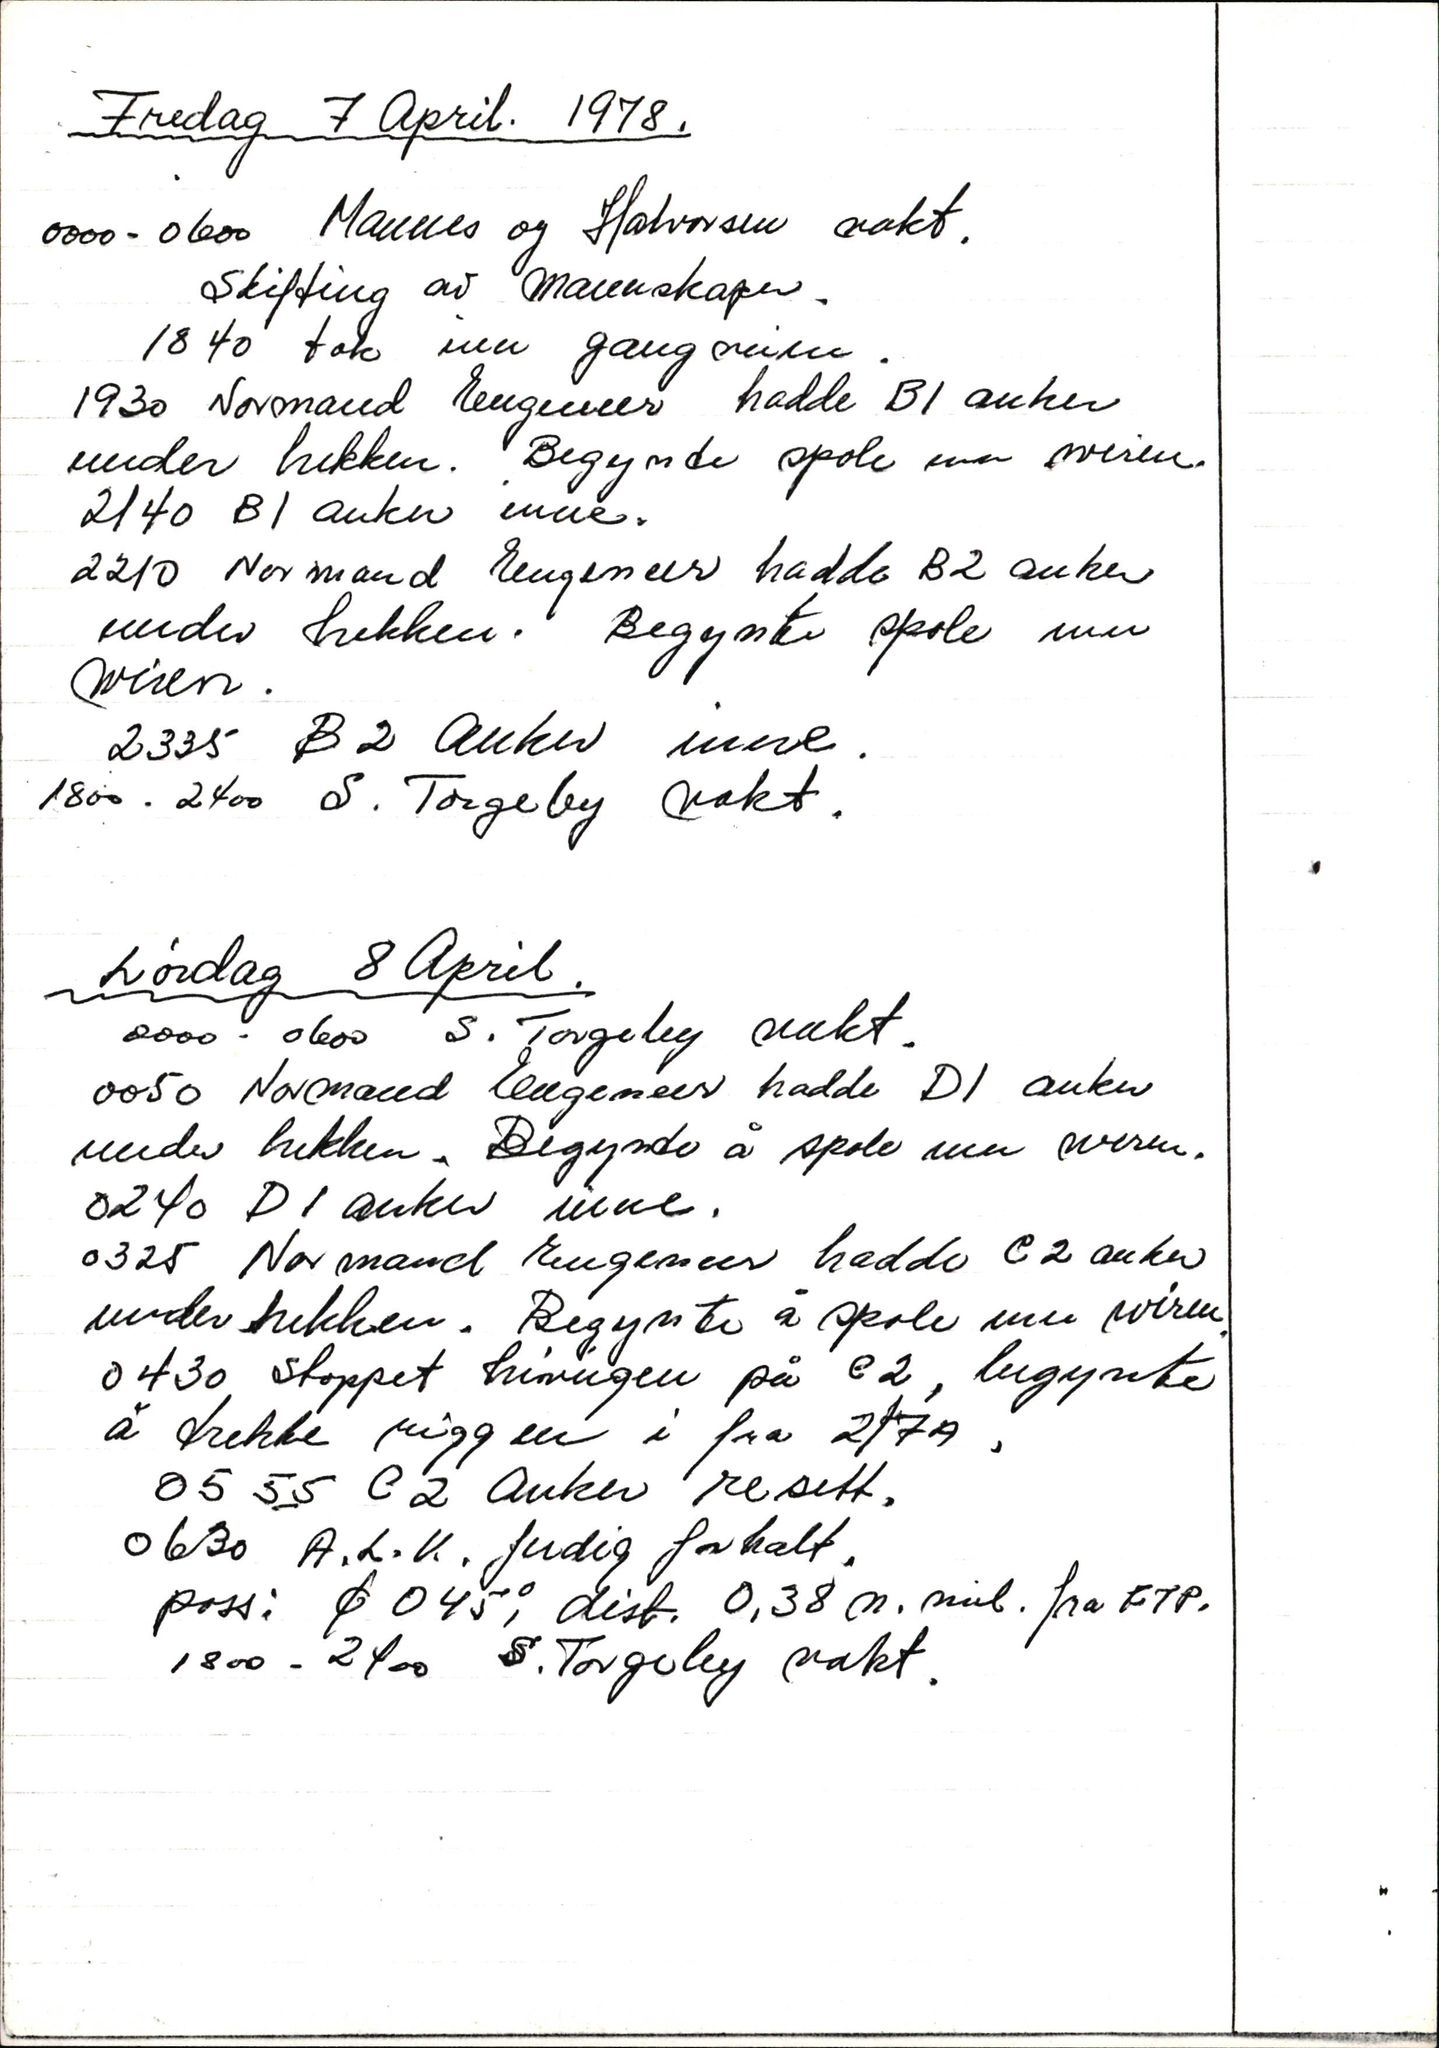 Fredag 7 April. 1978.
0000 - 0600 Mannes og Halvorsen vakt.
Skifting av Mannskaper.
1840 tok inn gangveien.
1930 Normand Engeneer hadde B1 anker
under hekken. Begynte spole inn wiren.
2140 B1 anker inne.
2210 Normand Engeneer hadde B2 anker
under hekken. Begynte spole inn
wiren.
2335 B2 Anker inne.
1800 - 2400 S. Torgeby vakt.
Lördag 8 April.
0000 - 0600 S. Torgeby vakt.
0050 Normand Engeneer hadde D1 anker
under hekken. Begynte å spole inn wiren.
0240 D1 anker inne.
0325 Normand Engeneer hadde C2 anker
under hekken. Begynte å spole inn wiren.
0430 Stoppet hivingen på C2, begynte
å trekke riggen i fra 2/7A.
0555 C2 Anker resett.
0630 A.L.K. ferdig forhalt.
poss: 045°, dist. 0,38 n. mil. fra FTP.
1800 - 2400 S. Torgeby vakt.